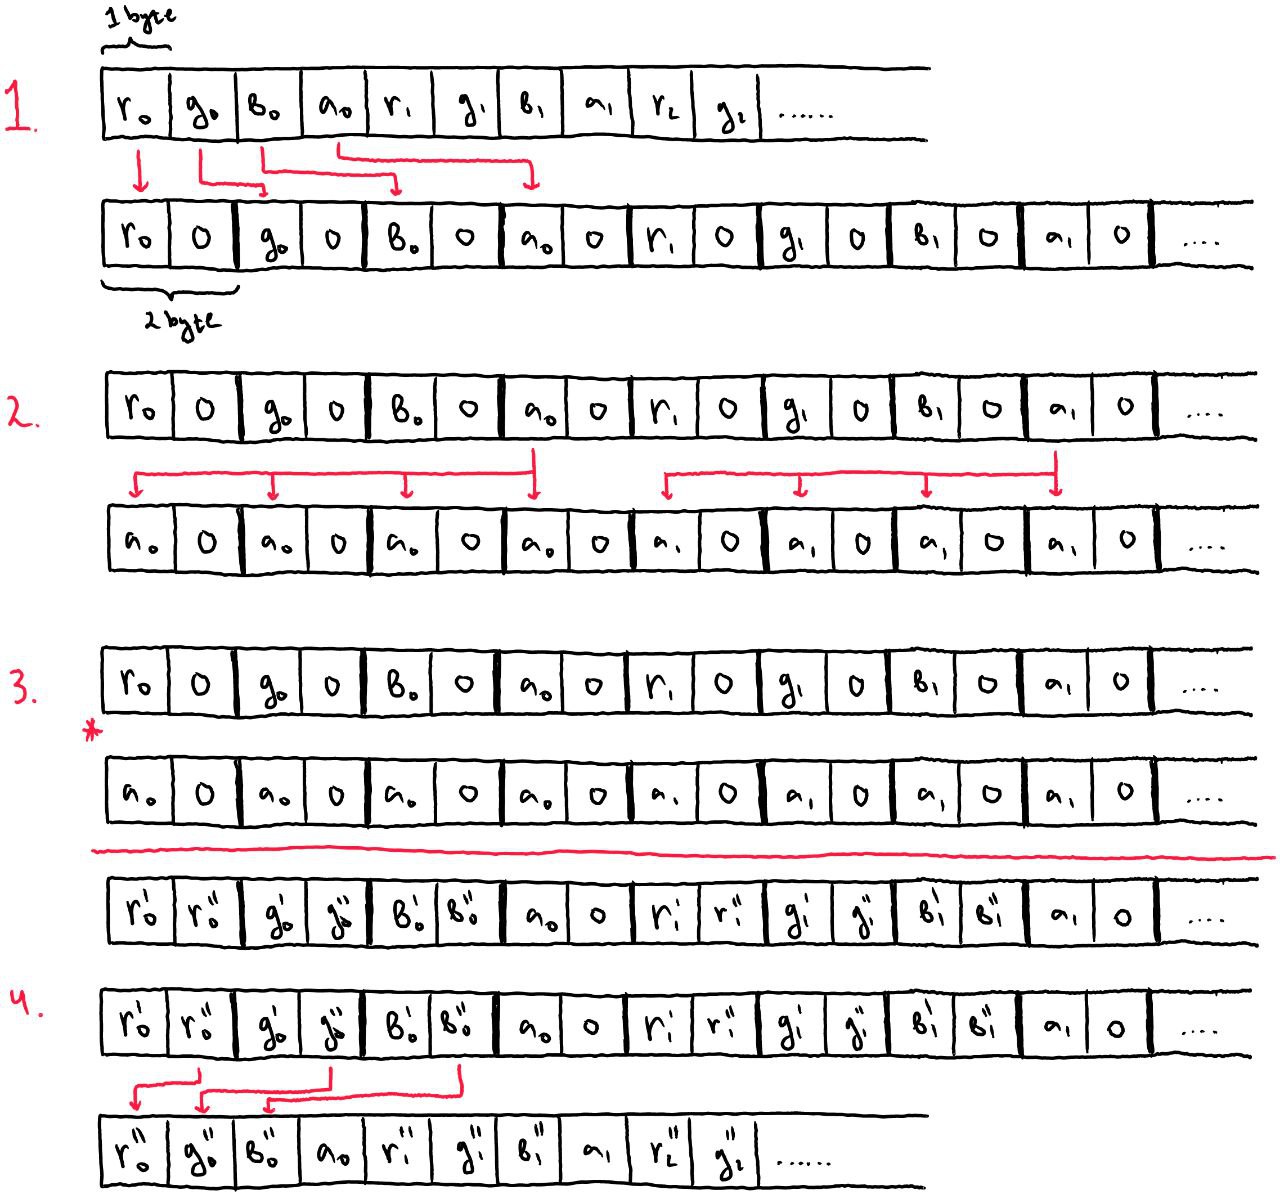 1 byte
1. r₀ g₀ B₀ a₀ r₁ g₁ B₁ a₁ r₂ g₂ ......
r₀ 0 g₀ 0 B₀ 0 a₀ 0 r₁ 0 g₁ 0 B₁ 0 a₁ 0 ....
2 byte
2. r₀ 0 g₀ 0 B₀ 0 a₀ 0 r₁ 0 g₁ 0 B₁ 0 a₁ 0 ....
a₀ 0 a₀ 0 a₀ 0 a₀ 0 a₁ 0 a₁ 0 a₁ 0 a₁ 0 ....
3. r₀ 0 g₀ 0 B₀ 0 a₀ 0 r₁ 0 g₁ 0 B₁ 0 a₁ 0 ....
*
a₀ 0 a₀ 0 a₀ 0 a₀ 0 a₁ 0 a₁ 0 a₁ 0 a₁ 0 ....
r₀' r₀'' g₀' g₀'' B₀' B₀'' a₀ 0 r₁' r₁'' g₁' g₁'' B₁' B₁'' a₁ 0 ....
4. r₀' r₀'' g₀' g₀'' B₀' B₀'' a₀ 0 r₁' r₁'' g₁' g₁'' B₁' B₁'' a₁ 0 ....
r₀'' g₀'' B₀'' a₀ r₁'' g₁'' B₁'' a₁ r₂'' g₂'' ......